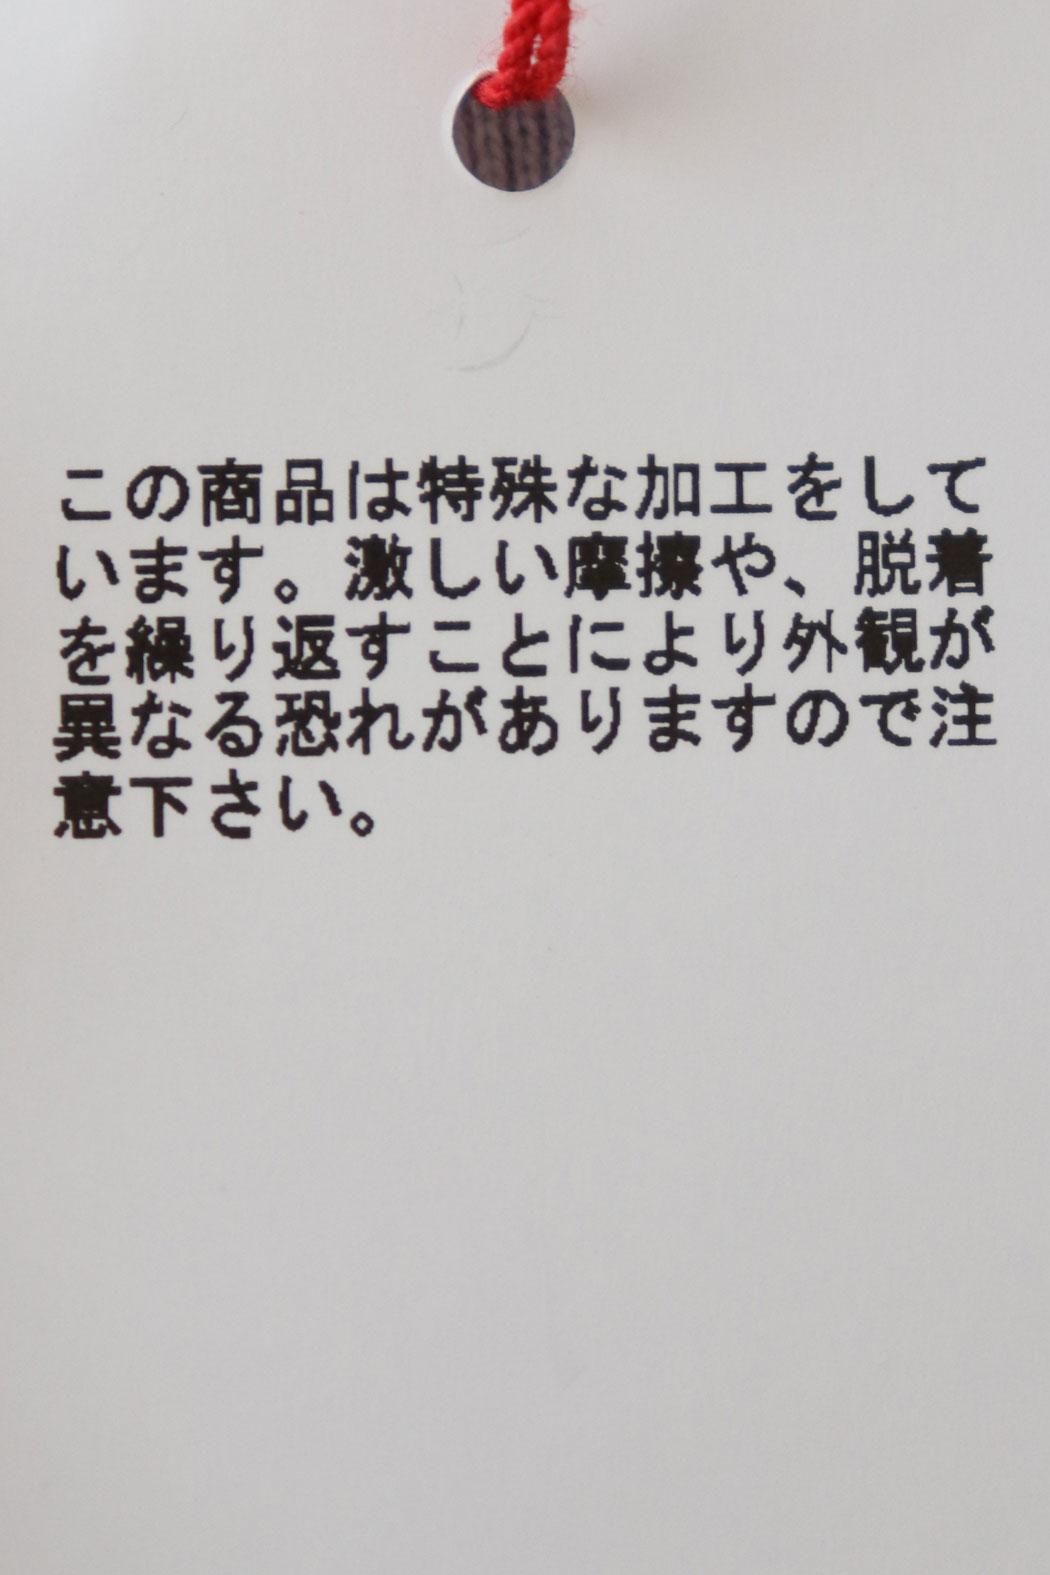 この商品は特殊な加工をして
います。激しい摩擦や、脱着
を繰り返すことにより外観が
異なる恐れがありますので注
意下さい。